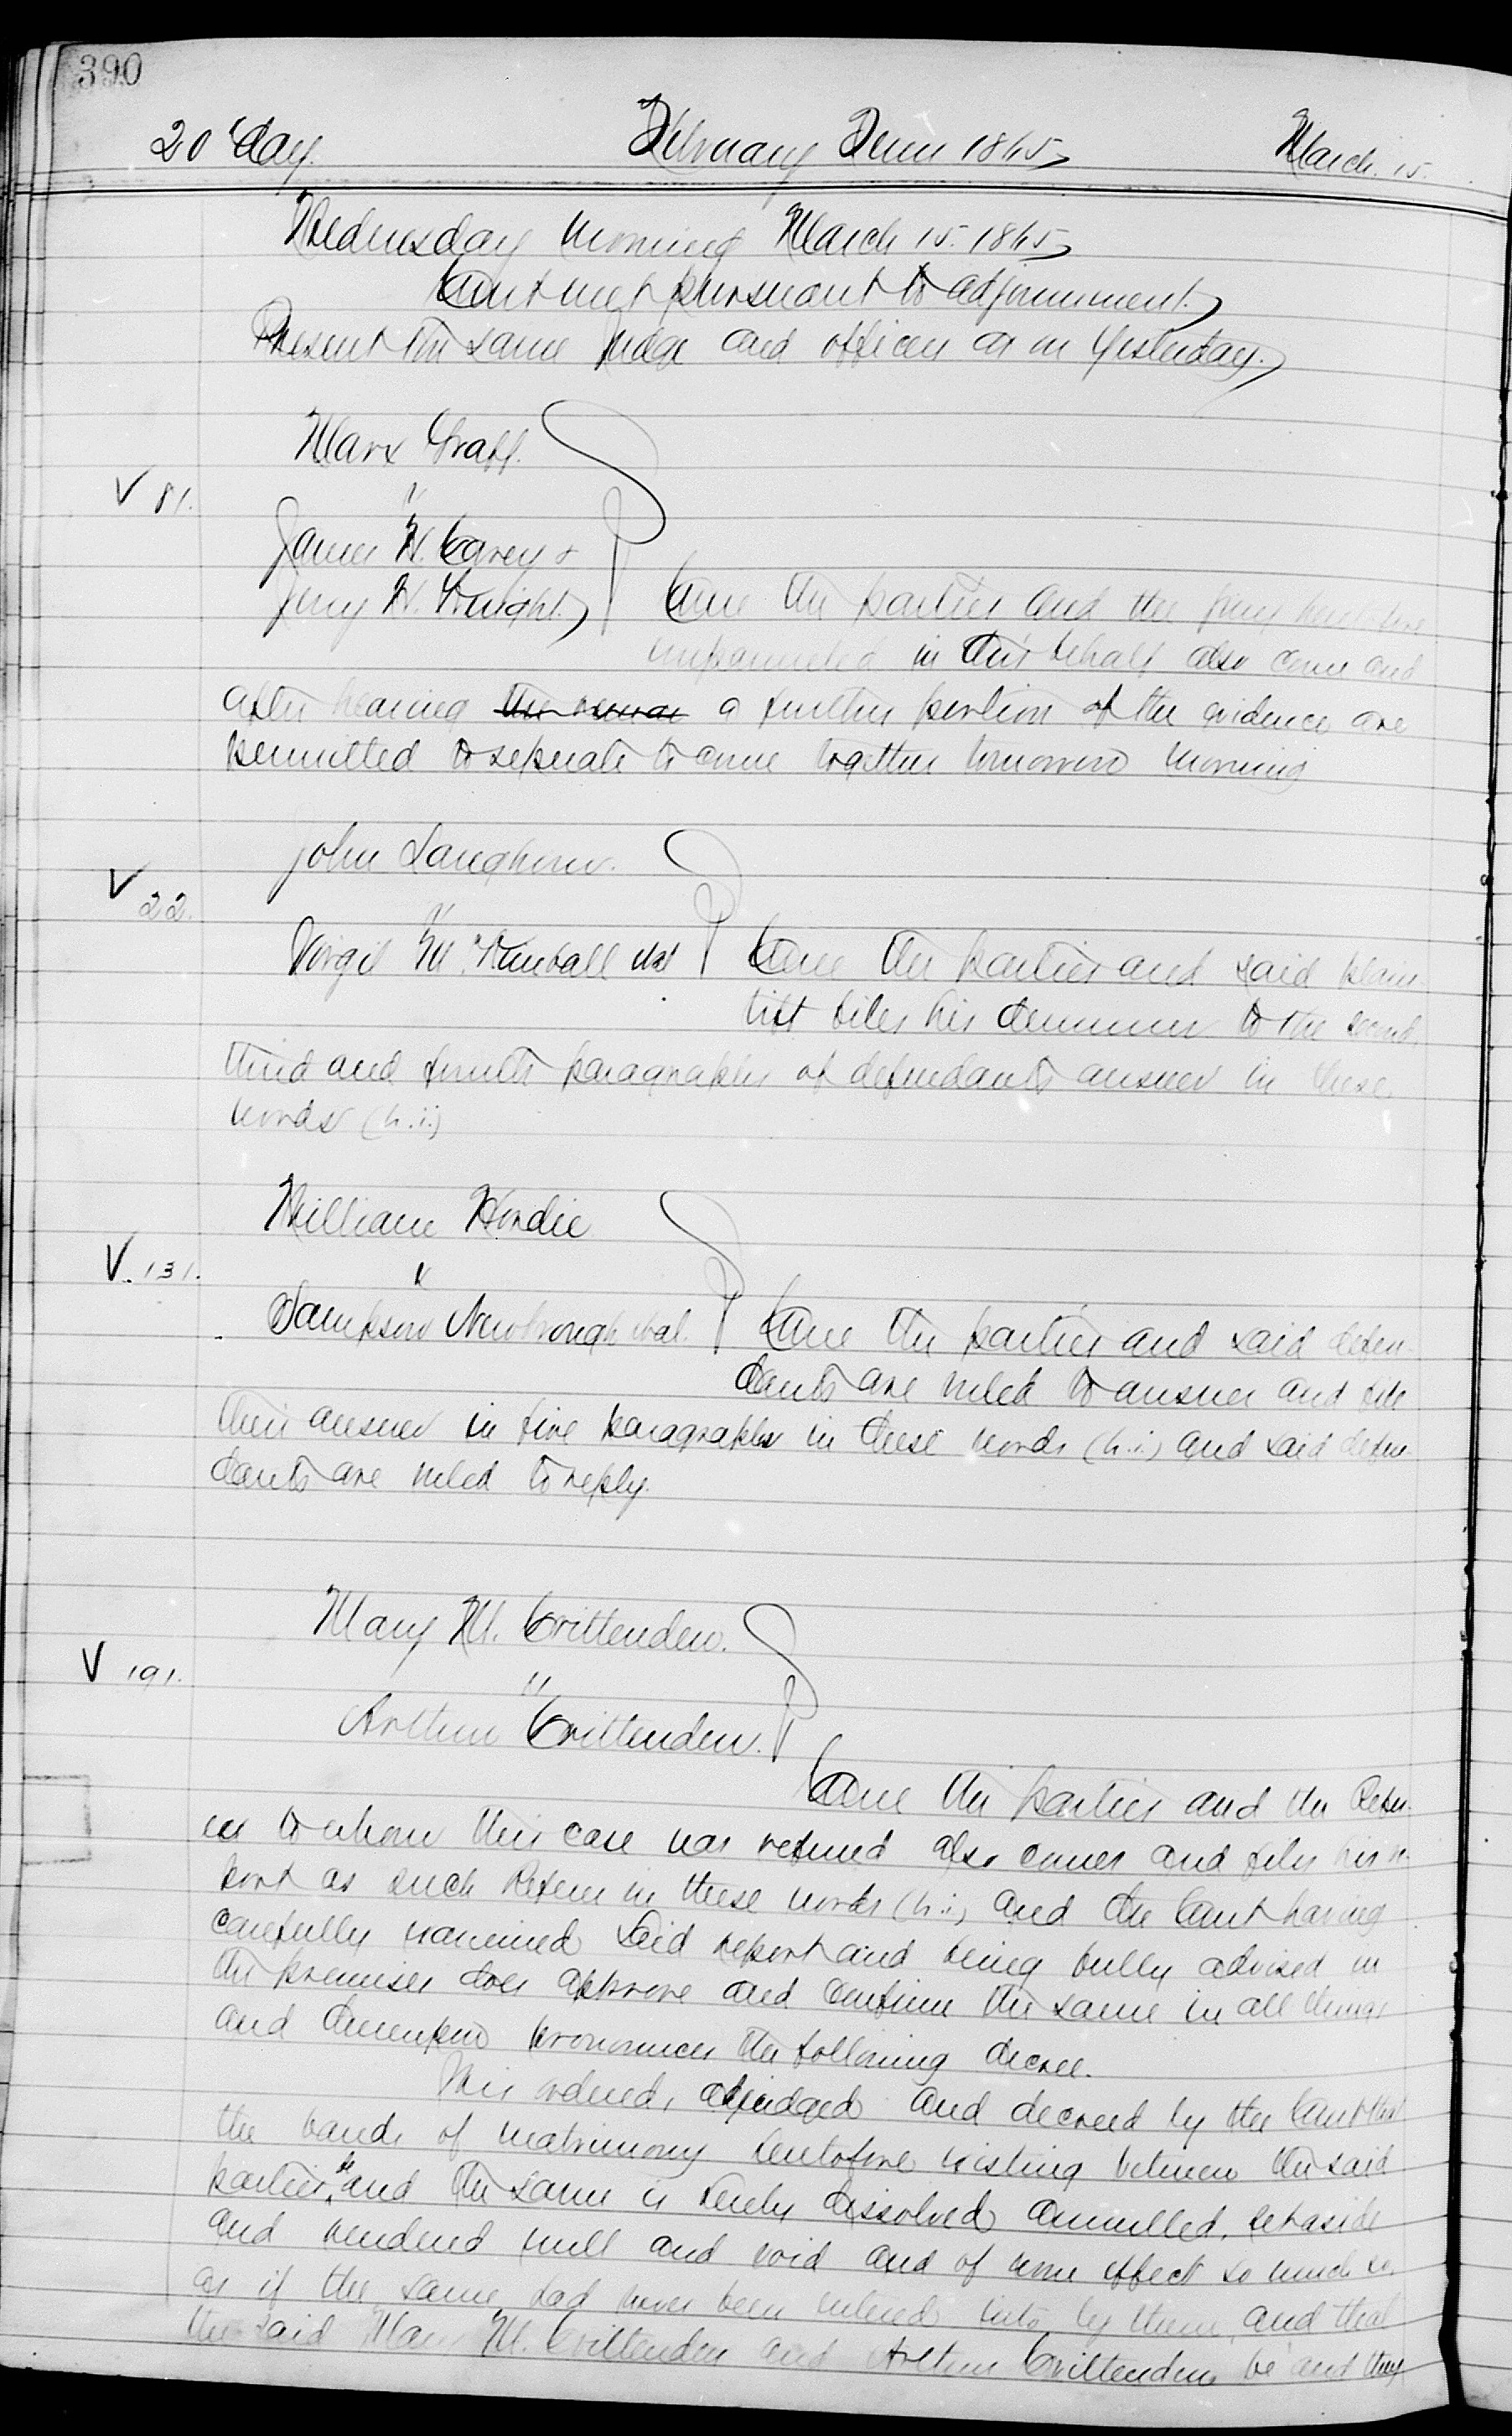 390
20 day. February Term 1865 March. 15.
Wednesday Morning March 15. 1865
Court met pursuant to adjournment.
Present the same Judge and officers as on Yesterday.
Marx Graff.
V 81. "
James W. Carey &
Jerry W. Wright. Come the parties and the jury heretofore
impanneled in this behalf also come and
after hearing a further portion of the evidence are
permitted to seperate to come together tomorrow morning
John
V 22. "
Virgil M. Kimball et al Come the parties and said plain
tiff files his demurrer to the second
third and fourth paragraphs of defendants answer in these
words (h.i.)
William Hordie
V. 131. "
Sampson Newbrough et al. Come the parties and said defen-
dants are ruled to answer and file
their answer in five paragraphs in these words (h.i.) and said defen-
dants are ruled to reply.
Mary M. Crittenden.
V 191. "
Arthur Crittenden.
Come the parties and the Refer-
ee to whom this case was referred also comes and files his re-
port as such Referee in these words (h.i.) and the Court having
carefully examined said report and being fully advised in
the premises does approve and confirm the same in all things
and thereupon pronounces the following decree.
It is ordered, adjudged and decreed by the Court that
the bands of matrimony heretofore existing between the said
parties, be and the same is hereby dissolved annulled, set aside
and rendered null and void and of none effect so much so
as if the same had never been entered into by them, and that
the said Mary M. Crittenden and Arthur Crittenden be and they